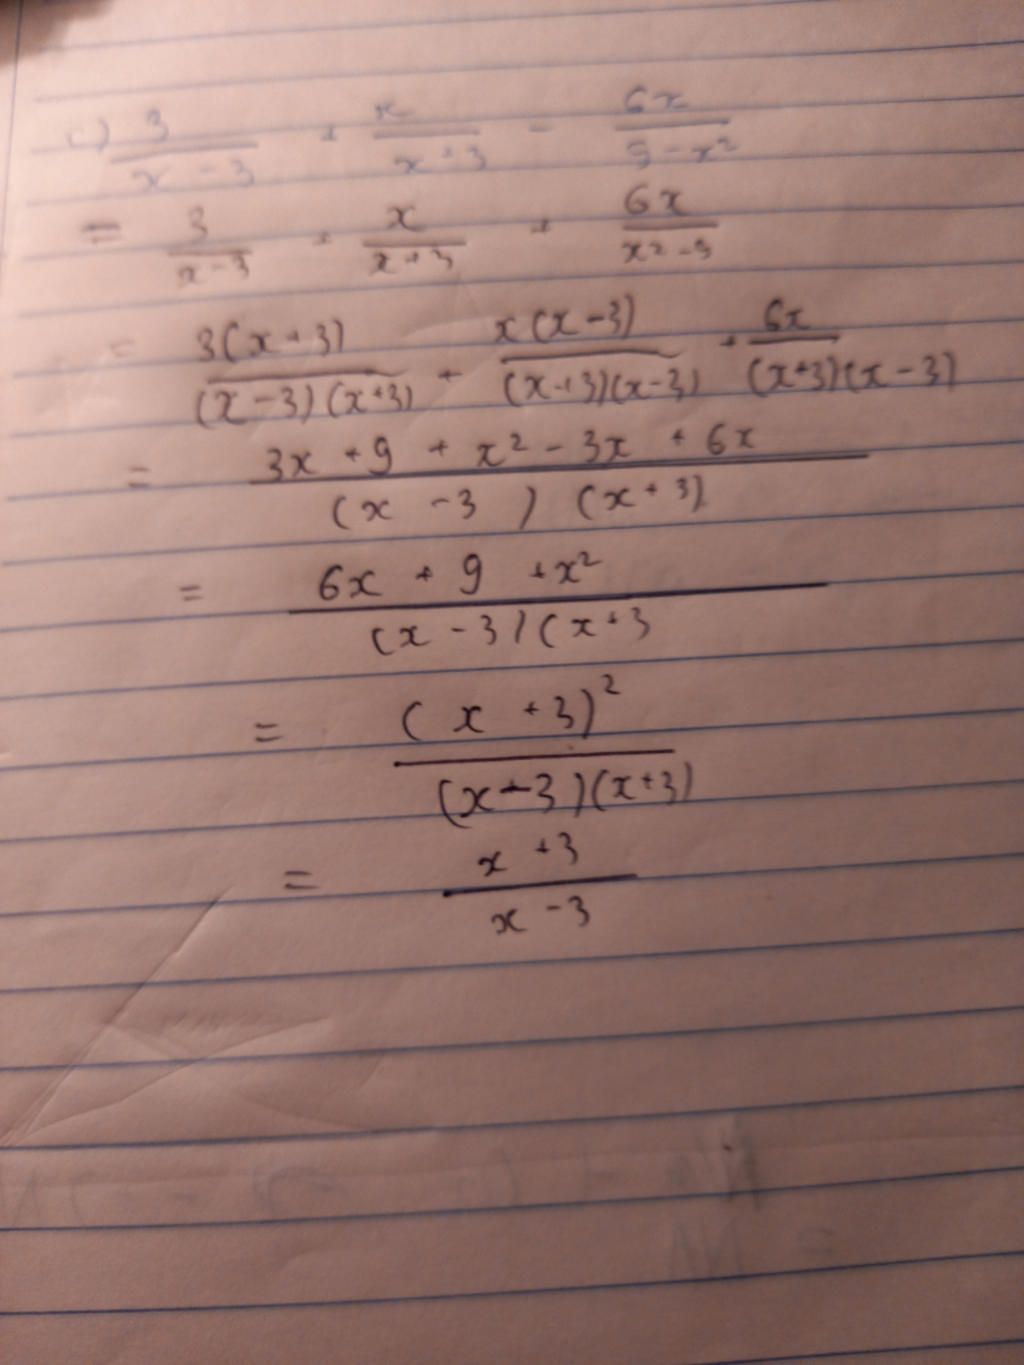 c) 3/(x - 3) + x/(x + 3) - 6x/(9 - x²)
= 3/(x - 3) + x/(x + 3) + 6x/(x² - 9)
= 3(x + 3)/((x - 3)(x + 3)) + x(x - 3)/((x + 3)(x - 3)) + 6x/((x + 3)(x - 3))
= (3x + 9 + x² - 3x + 6x)/((x - 3)(x + 3))
= (6x + 9 + x²)/((x - 3)(x + 3
= (x + 3)²/((x - 3)(x + 3))
= (x + 3)/(x - 3)